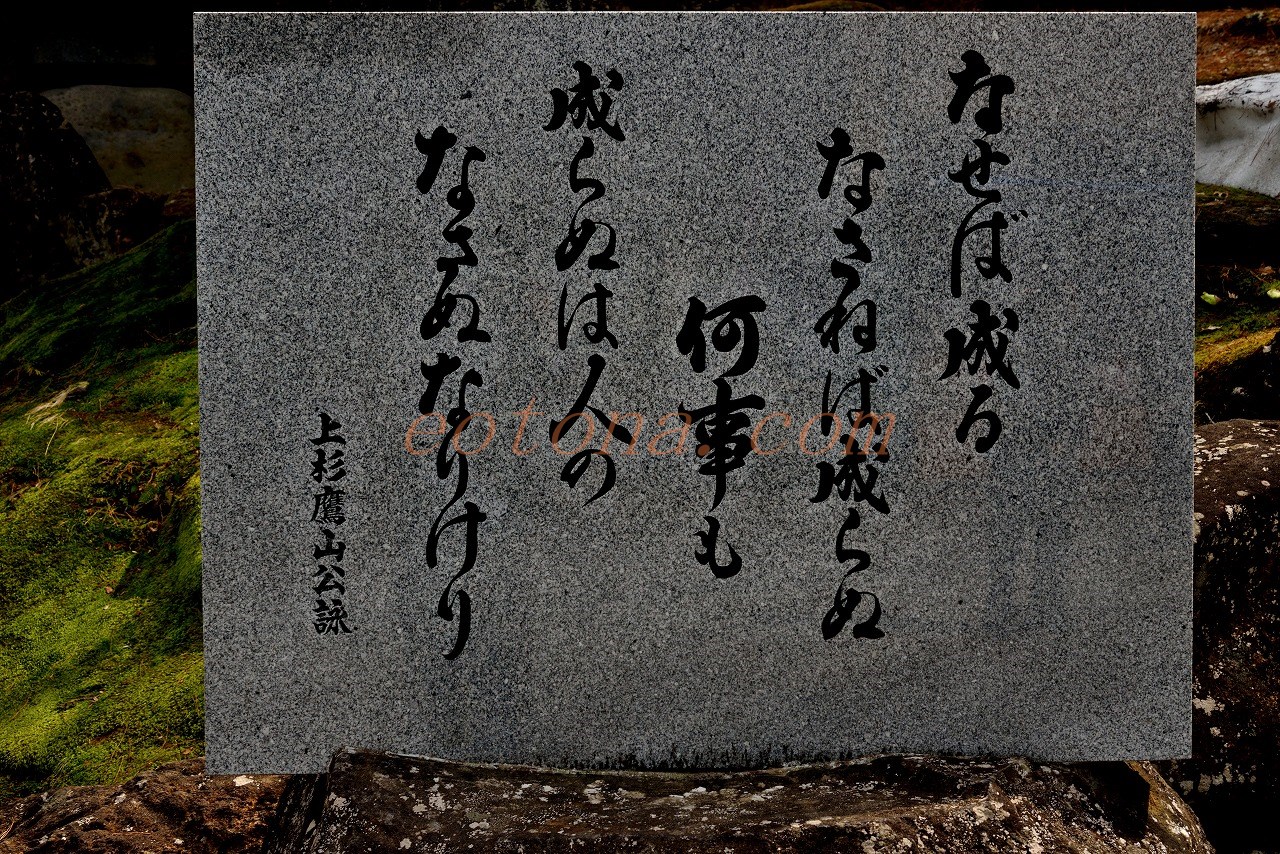 なせば成る
なさねば成らぬ
何事も
成らぬは人の
なさぬなりけり
上杉鷹山公詠
eotona.com